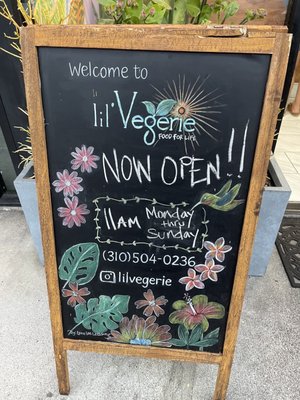 Welcome to
lil' Vegerie
FOOD FOR LIFE
NOW OPEN!!
11AM Monday
thru
Sunday
(310) 504-0236
lilvegerie